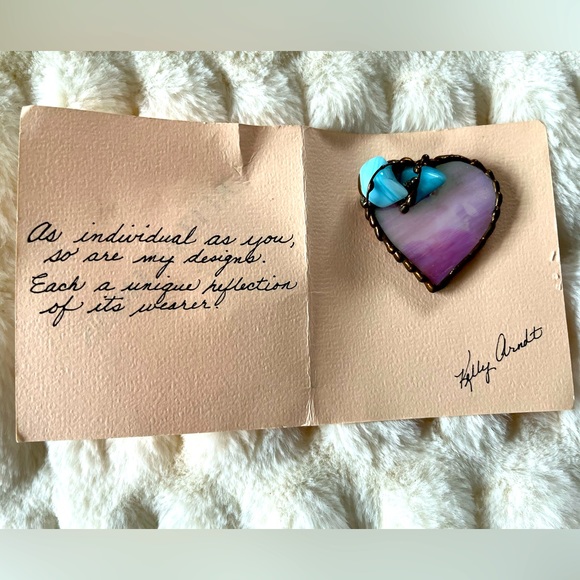 As individual as you,
so are my designs.
Each a unique reflection
of its wearer.
Kelly Arndt